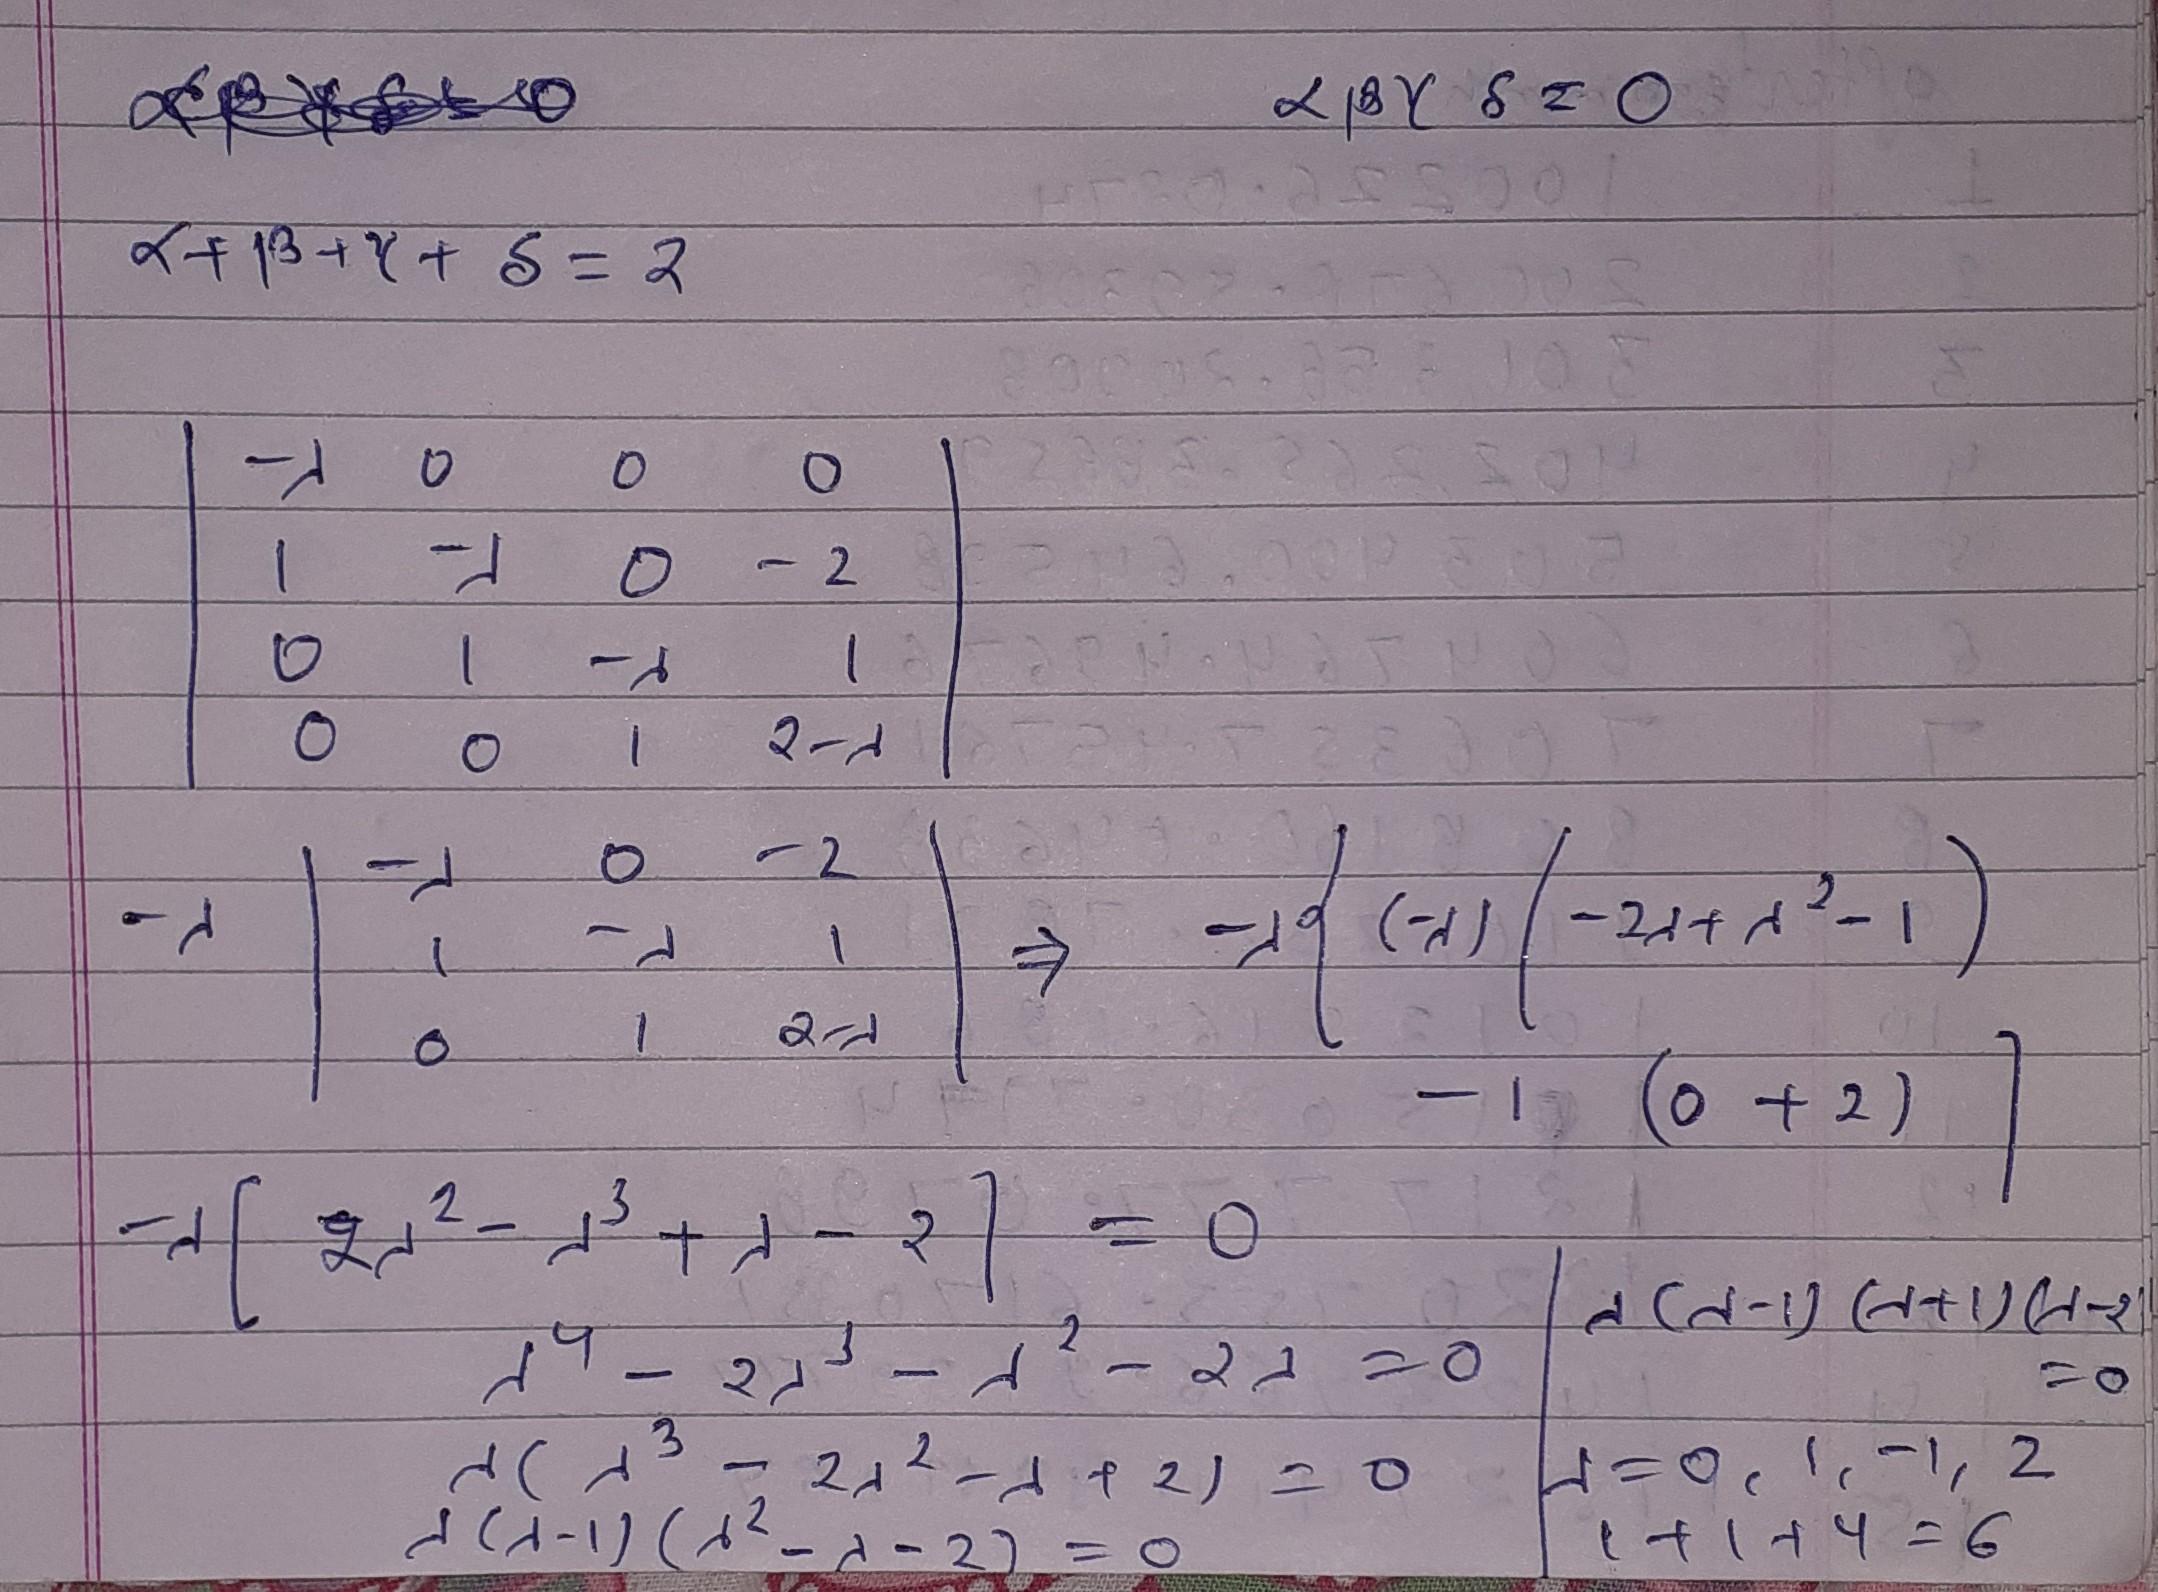 αβγδ = 0
α+β+γ+δ = 2
| -λ 0 0 0 |
| 1 -λ 0 -2 |
| 0 1 -λ 1 |
| 0 0 1 2-λ |
-λ | -λ 0 -2 |
| 1 -λ 1 |
| 0 1 2-λ |
⇒ -λ{ (-λ) ( -2λ+λ²-1 )
-1 (0 + 2) ]
-λ [ 2λ² - λ³ + λ - 2 ] = 0
λ⁴ - 2λ³ - λ² - 2λ = 0
λ( λ³ - 2λ² - λ + 2) = 0
λ(λ-1) (λ² - λ - 2) = 0
λ(λ-1) (λ+1) (λ-2)
= 0
λ = 0, 1, -1, 2
1 + 1 + 4 = 6